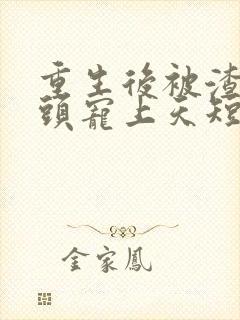 重生後被渣
頭寵上天短
金家鳳